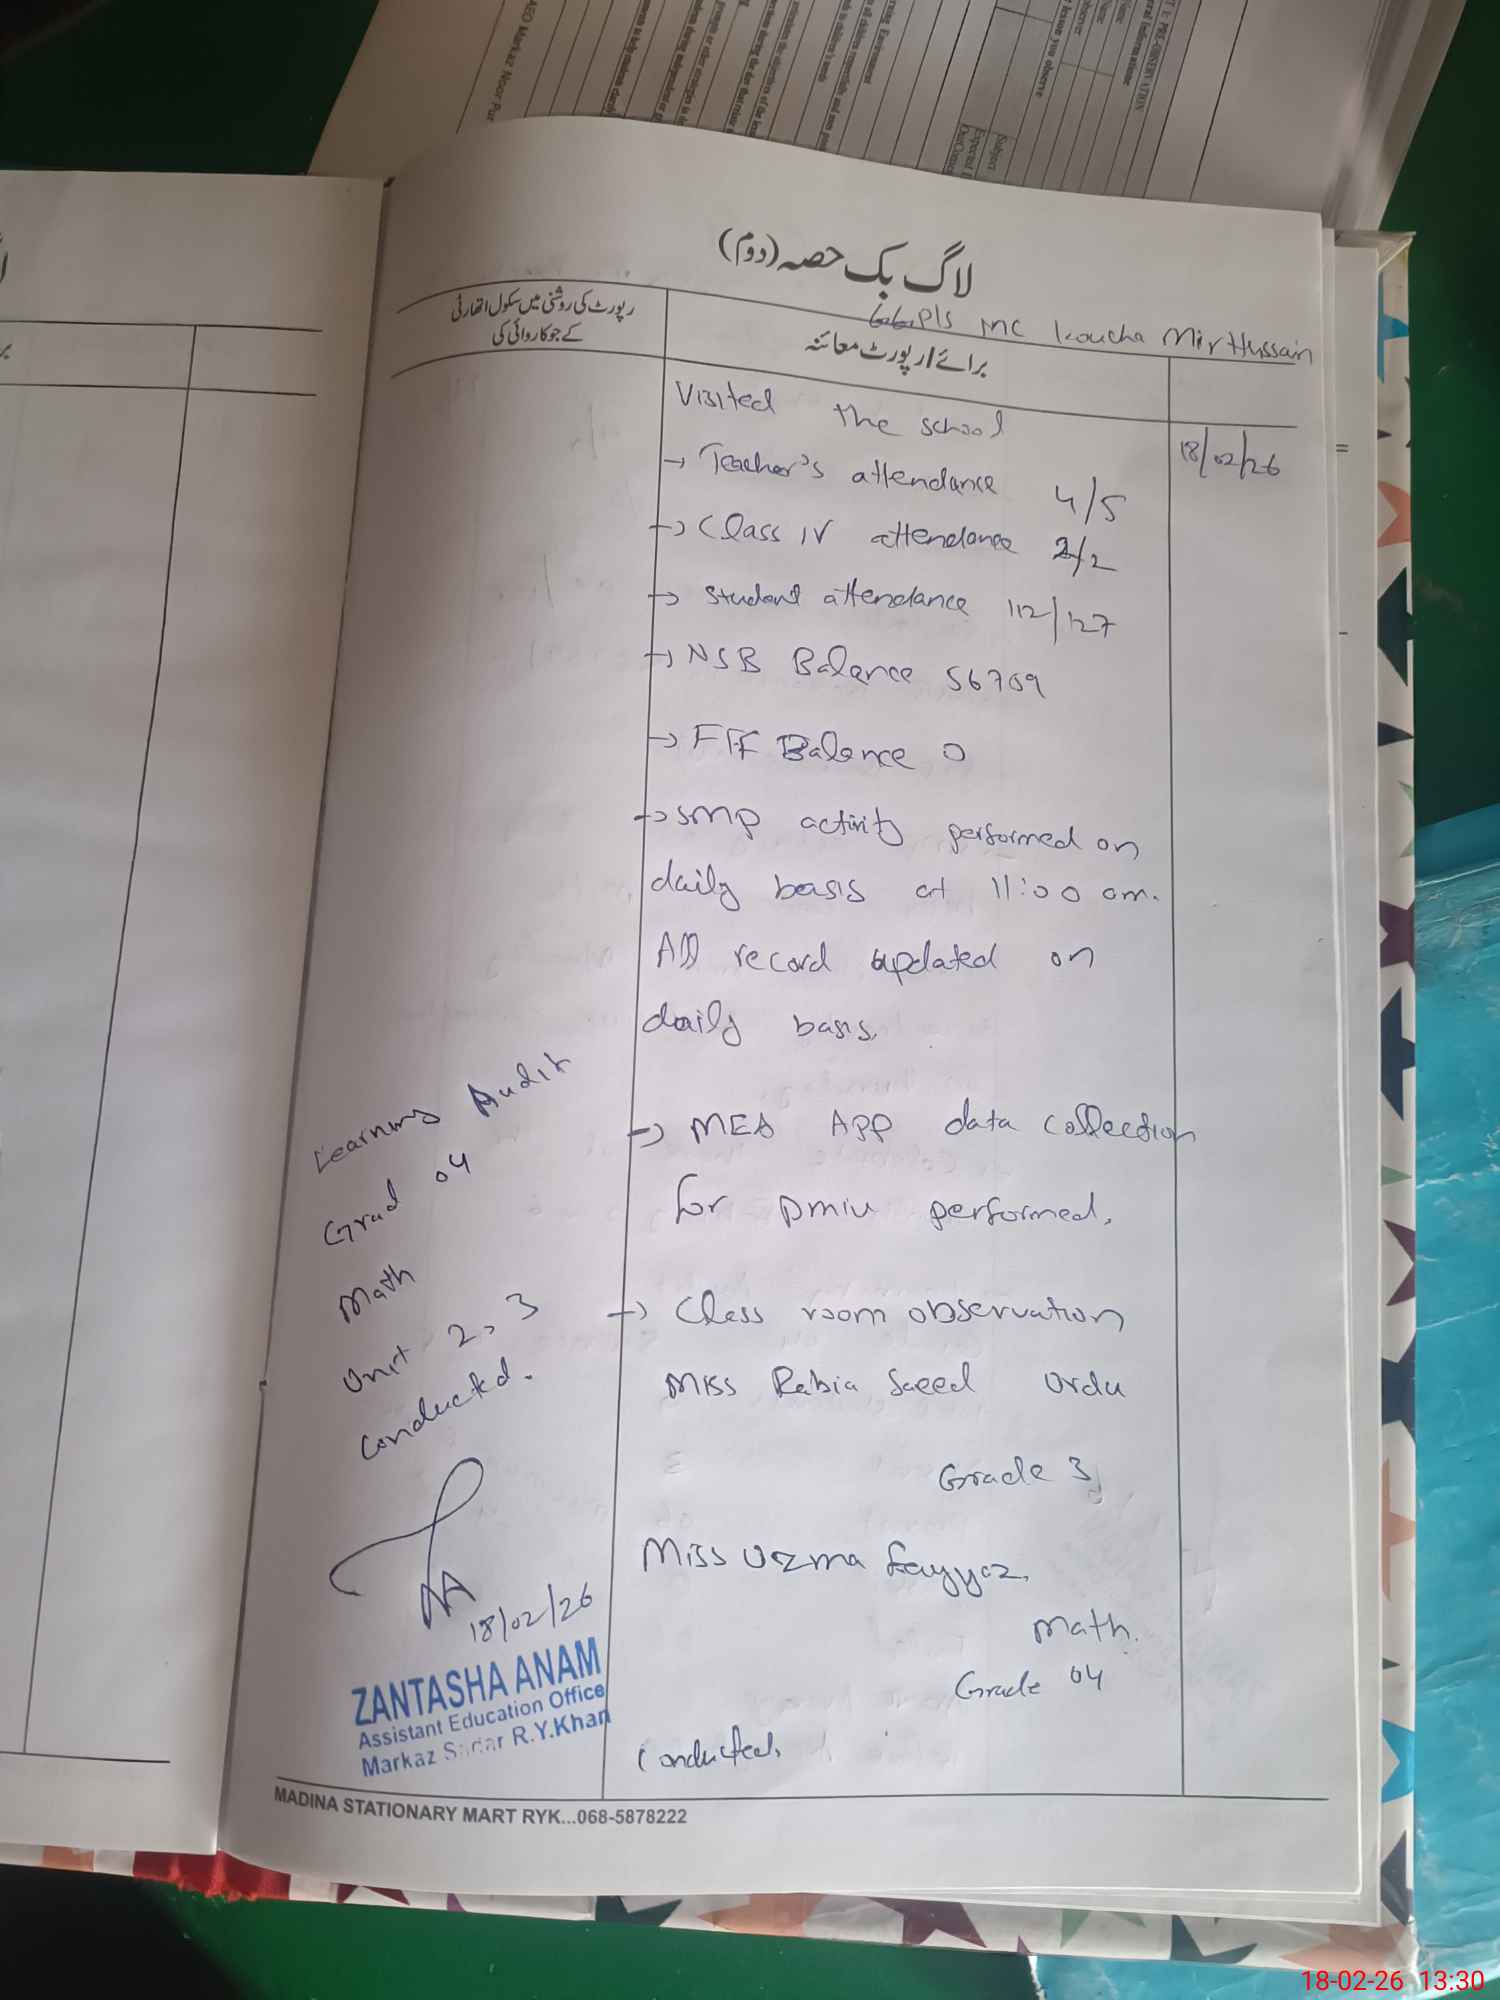 لاگ بک حصہ (دوم)
رپورٹ کی روشنی میں سکول اتھارٹی
کے جو کاروائی کی
GGPS MC Koucha Mir Hussain
برائے ارپورٹ معائنہ
Visited the school
18/02/26
→ Teacher's attendance 4/5
→ Class IV attendance 2/2
→ Student attendance 112/127
→ NSB Balance 56709
→ FTF Balance 0
→ SMP activity performed on
daily basis at 11:00 am.
All record updated on
daily basis.
→ MEA APP data collection
for pmiu performed.
→ Class room observation
Miss Rabia Saeed Urdu
Grade 3
Miss Uzma Fayyaz.
Math.
Grade 04
Conducted.
Learning Audit
Grad 04
Math
Unit 2, 3
Conducted.
18/02/26
ZANTASHA ANAM
Assistant Education Office
Markaz Sadar R.Y.Khan
MADINA STATIONARY MART RYK...068-5878222
AEO Markaz Noor Pur
T I: PRE-OBSERVATION
Subject
18-02-26 13:30